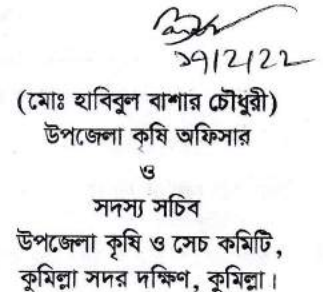 ১৭/2/22
(মোঃ হাবিবুল বাশার চৌধুরী)
উপজেলা কৃষি অফিসার
ও
সদস্য সচিব
উপজেলা কৃষি ও সেচ কমিটি,
কুমিল্লা সদর দক্ষিণ, কুমিল্লা।